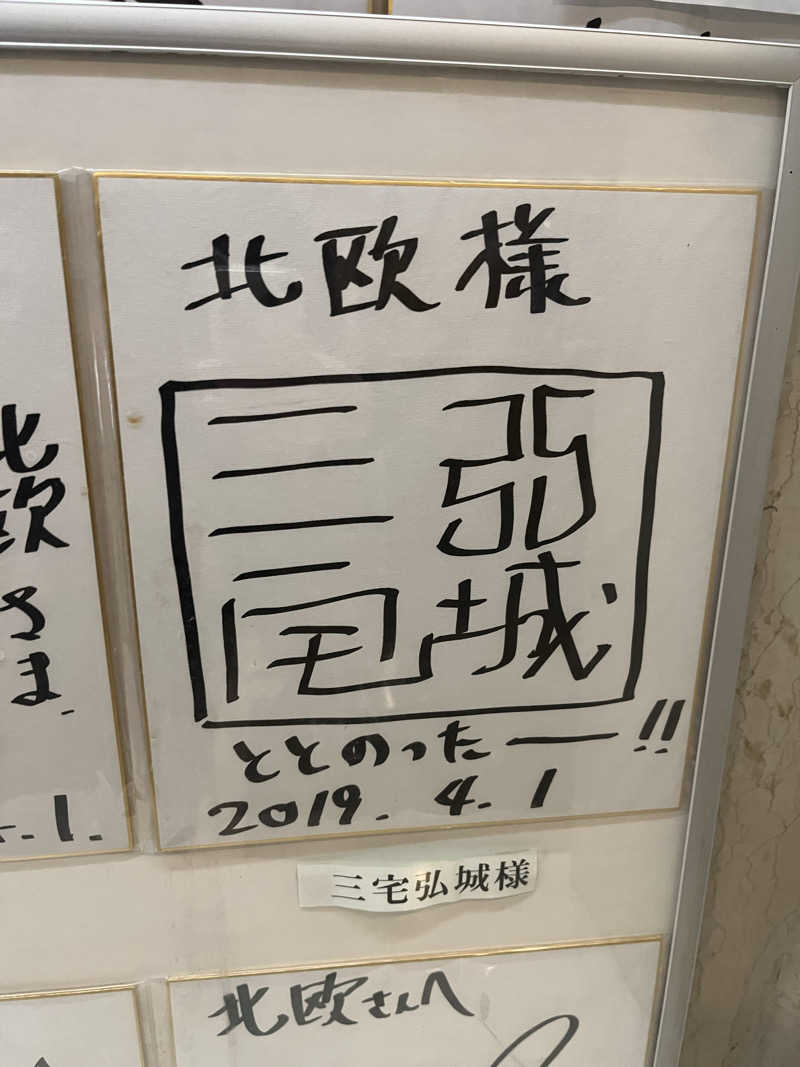 北欧様
三宅
弘城
ととのったー!!
2019. 4. 1
三宅弘城様
北欧さま.
1.
北欧さんへ